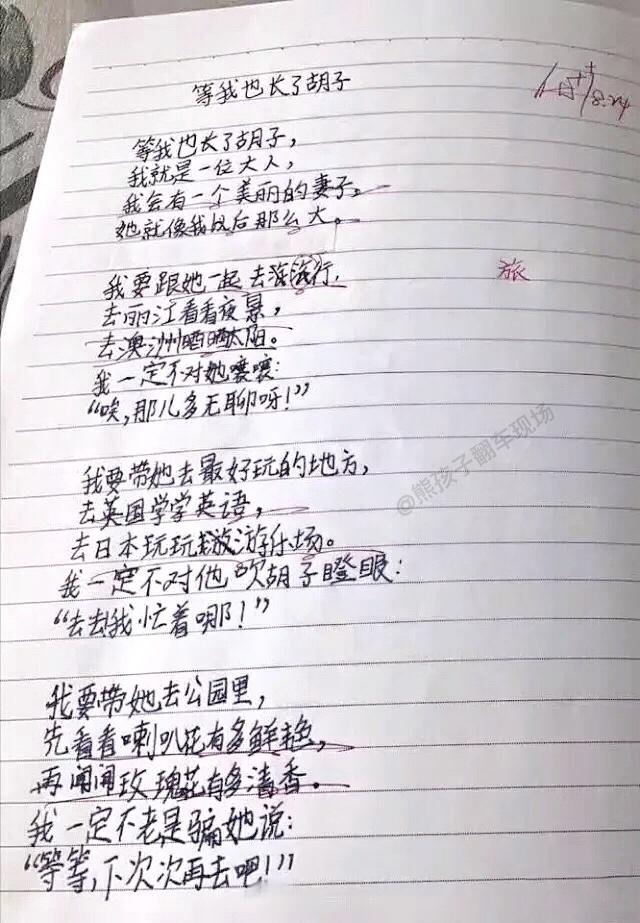 等我也长了胡子
等我也长了胡子,
我就是一位大人,
我会有一个美丽的妻子。
她就像我以后那么大。
我要跟她一起去旅行,
旅
去丽江看看夜景,
去澳洲晒晒太阳。
我一定不对她嚷嚷:
“唉,那儿多无聊呀!”
@熊孩子翻车现场
我要带她去最好玩的地方,
去英国学学英语,
去日本玩玩游乐场。
我一定不对他吹胡子瞪眼:
“去去我忙着哪!”
我要带她去公园里,
先看看喇叭花有多鲜艳,
再闻闻玫瑰花有多清香。
我一定不老是骗她说:
“等等,下次次再去吧!”